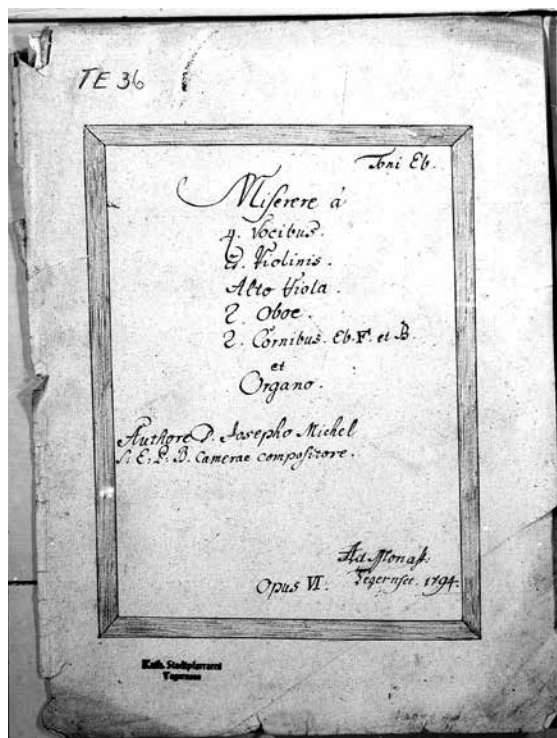 TE 36
Toni Eb.
Miserere à
4. Vocibus.
2. Violinis.
Alto Viola.
2. Oboe.
2. Cornibus. Eb. F. et B
et
Organo.
Authore D. Josepho Michel
S: E: P: B. Camerae compositore.
Ad Monast:
Opus VI. Tegernsee. 1794.
Kath. Stadtpfarramt
Tegernsee